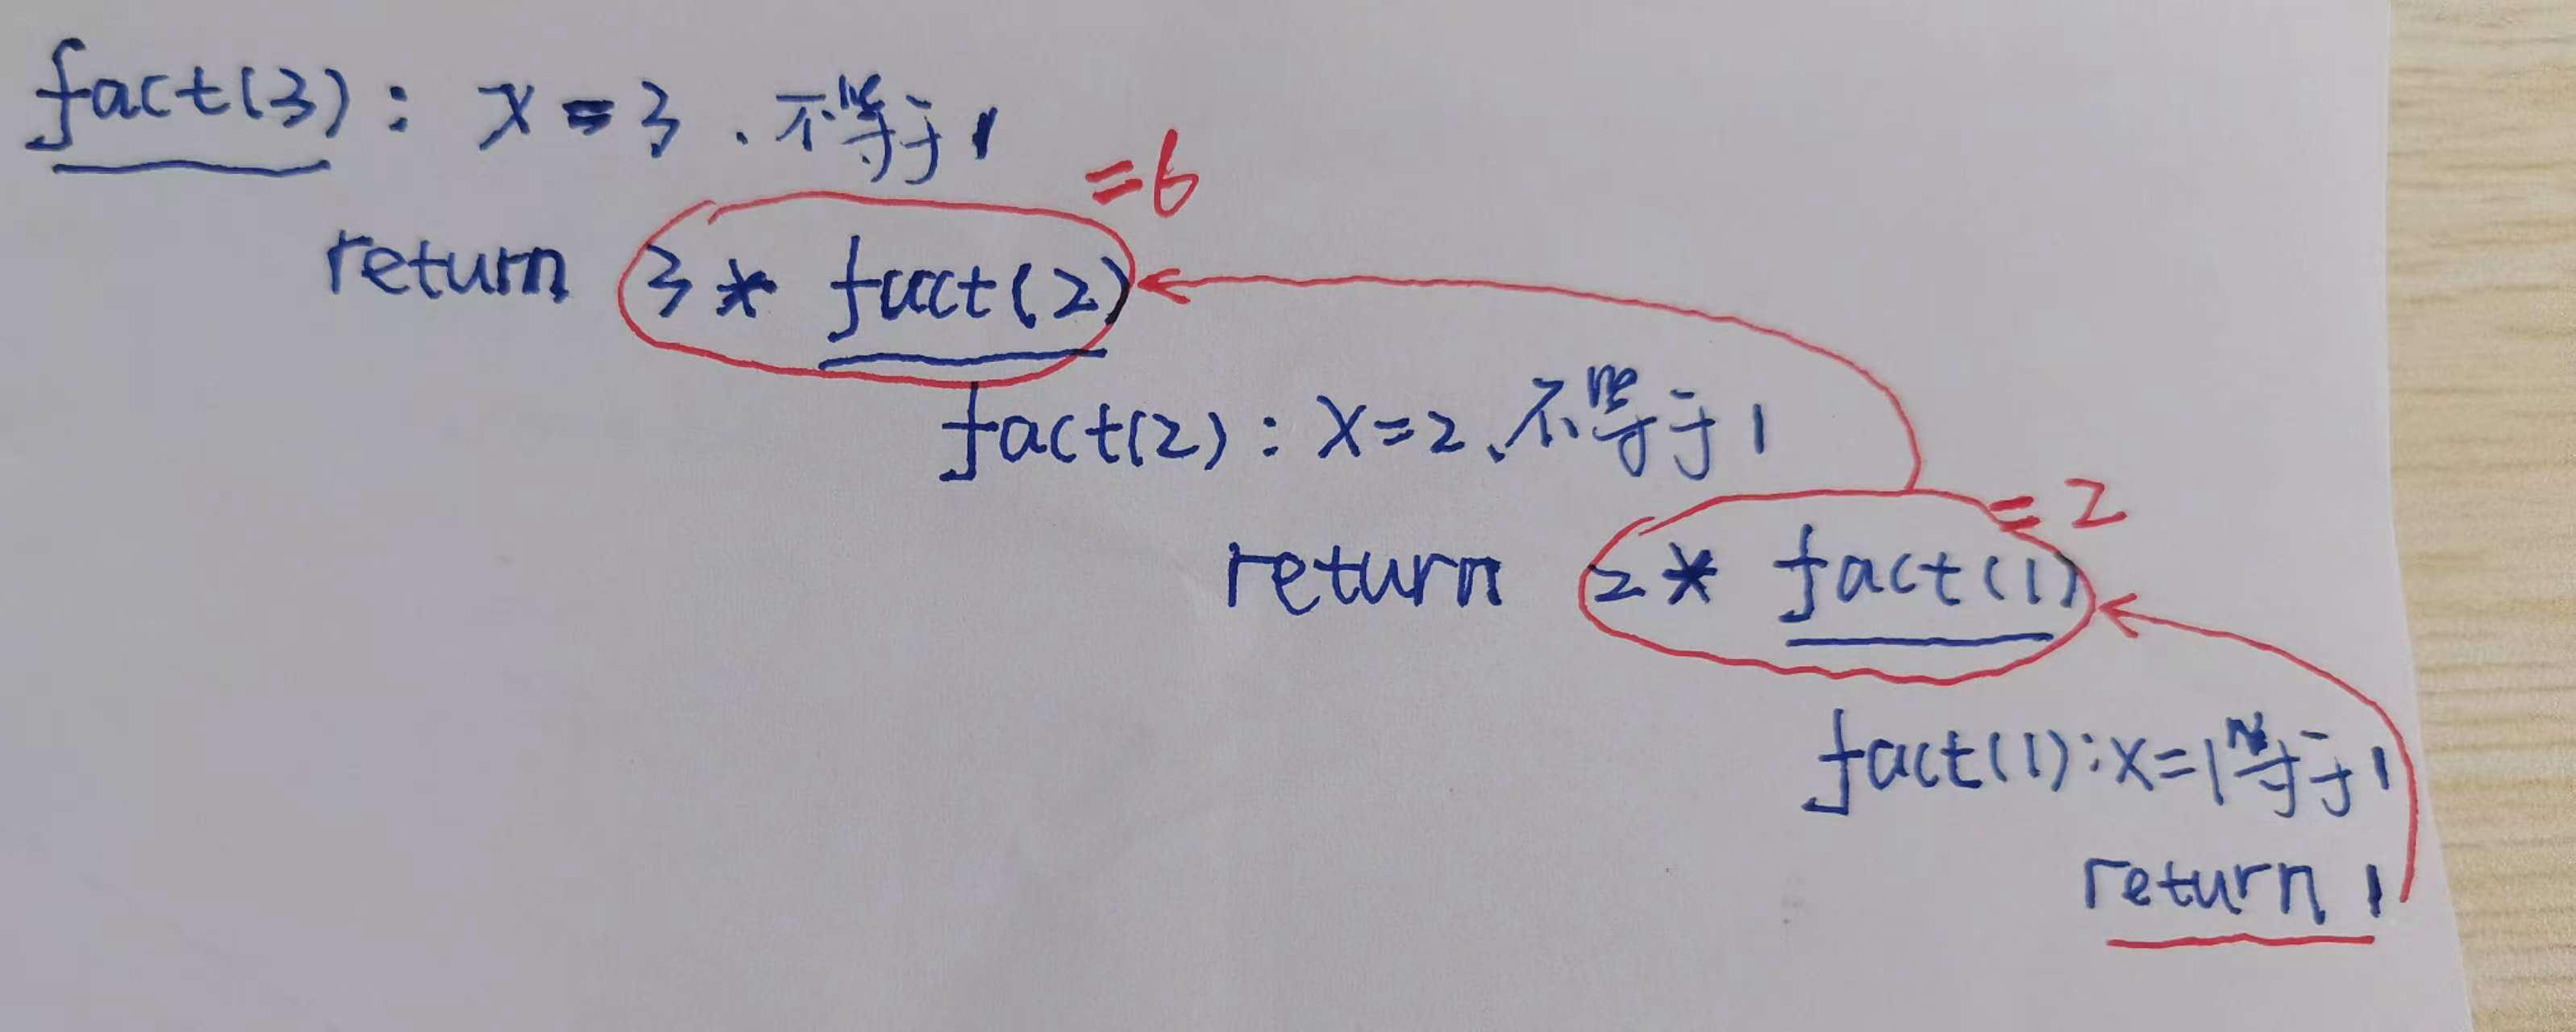 fact(3): x=3、不等于1
=6
return 3* fact(2)
fact(2): x=2、不等于1
=2
return 2* fact(1)
fact(1):x=1等于1
return 1